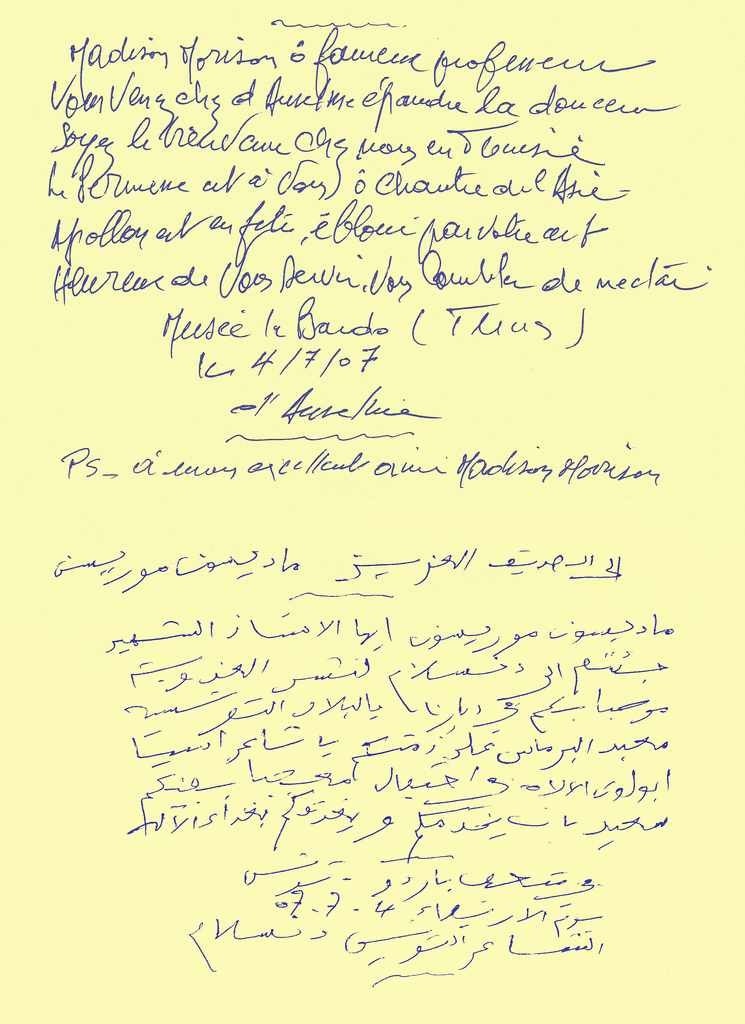 Madison Morison ô fameux professeur
Vous venez chez d'Anselme épandre la douceur
Soyez le bienvenu chez nous en Tunisie
est à vous, ô chantre de l'Asie
Apollon est en fête, ébloui par votre art
Heureux de vous servir, vous combler de nectar
Musée le Bardo (Tunis)
le 4/7/07
d'Anselme
Ps_ à mon excellent ami Madison Morison
إلى الصديق العزيز ماديسون موريسون
ماديسون موريسون أيها الأستاذ الشهير
جئتم إلى دنسلام لنشر العذوبة
مرحبا بكم في ديارنا بالبلاد التونسية
معبد على ذمتكم يا شاعر آسيا
ابولون الالاه في احتفال معجبا بفنكم
سعيد بأن يخدمكم و بغذاء الآلهة
في متحف باردو - تونس
يوم الاربعاء 4 - 7 - 07
الشاعر التونسي دنسلام